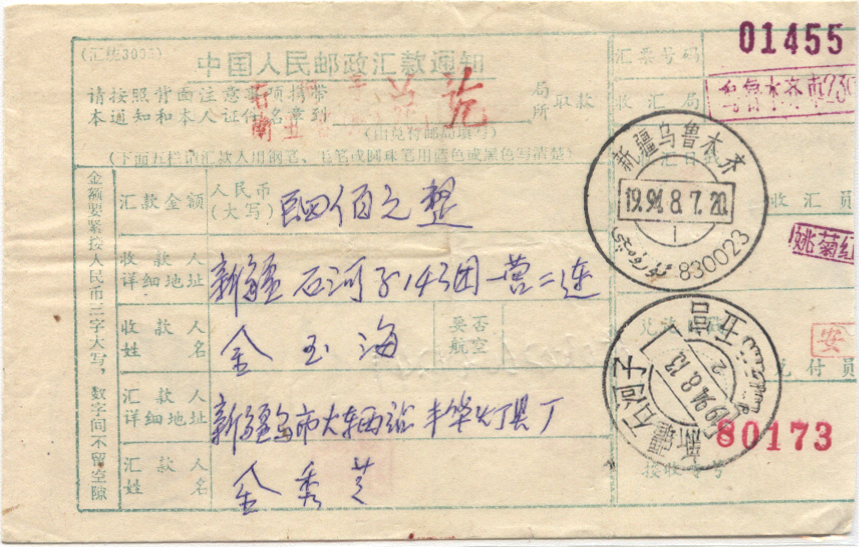 (汇统3005)
中国人民邮政汇款通知
请按照背面注意事项携带
本通知和本人证件名章到
局
所
取款
(由兑付邮局填写)
(下面五栏请汇款人用钢笔、毛笔或圆珠笔用蓝色或黑色写清楚)
金额要紧接人民币三字大写,数字间不留空隙
汇款金额
人民币
(大写)
佰元整
收款人
详细地址
新疆石河子143团一营二连
收款人
姓名
金玉海
要否
航空
汇款人
详细地址
新疆乌市火车西站丰华灯具厂
汇款人
姓名
金秀芝
汇票号码
01455
收汇局
乌鲁木齐市730
收汇日戳
新疆乌鲁木齐
19.94.8.7.20.
1
830023
收汇员
姚菊红
兑讫日戳
新疆石河子
1994.8.13
2
安
兑付员
80173
接收专号